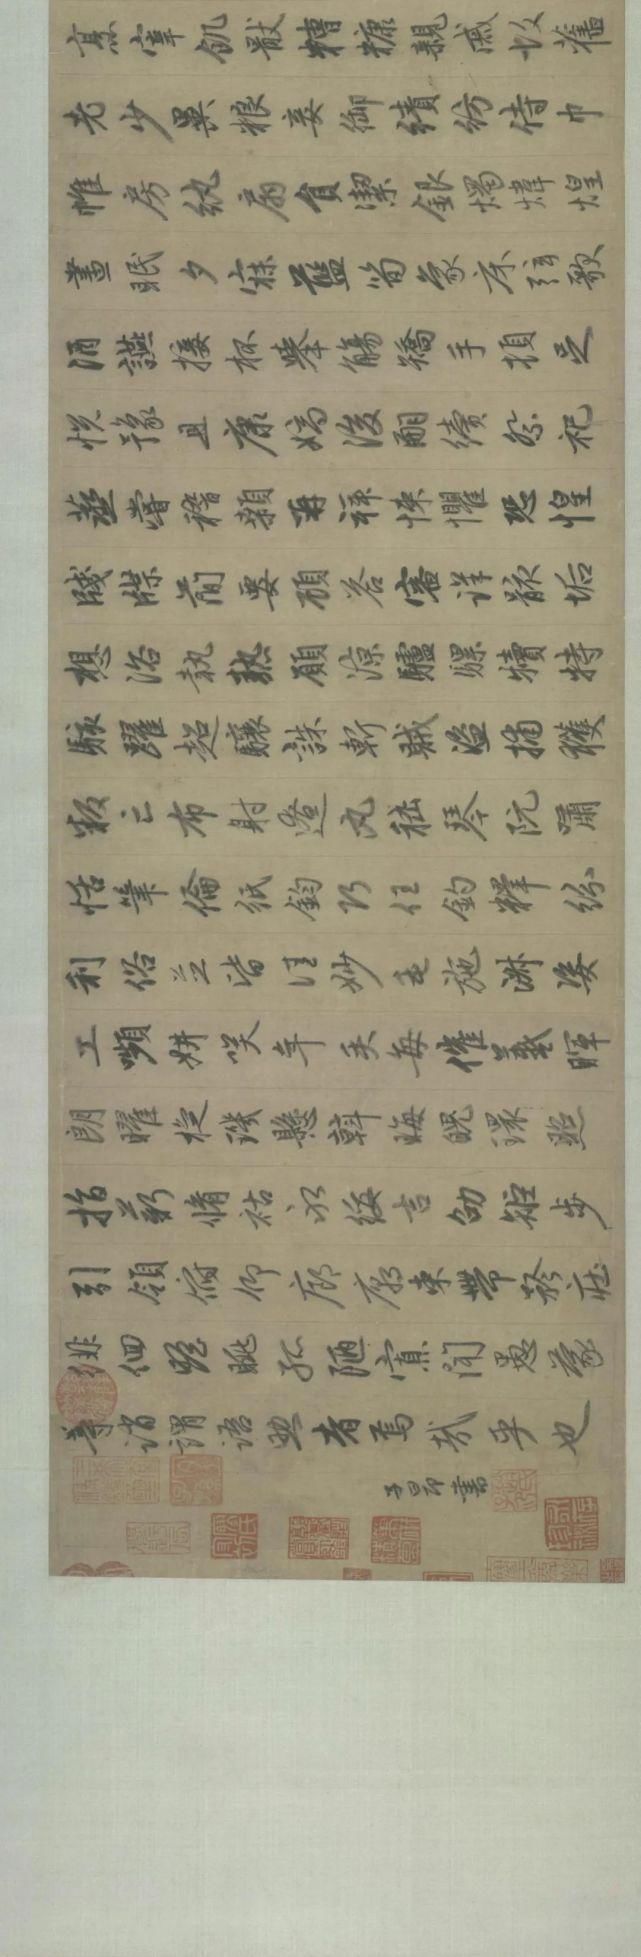 烹宰飢猒糟糠親戚故舊
老少異粮妾御績紡侍巾
帷房紈扇員潔銀燭煒煌
晝眠夕寐藍笋象床弦歌
酒讌接杯舉觴矯手頓足
悅豫且康嫡後嗣續祭祀
蒸嘗稽顙再拜悚懼恐惶
牋牒簡要顧答審詳骸垢
想浴執熱願涼驢騾犢特
駭躍超驤誅斬賊盜捕獲
叛亡布射遼丸嵇琴阮嘯
恬筆倫紙鈞巧任釣釋紛
利俗並皆佳妙毛施淑姿
工嚬妍笑年矢每催羲暉
朗曜旋璣懸斡晦魄環照
指薪脩祜永綏吉劭矩步
引領俯仰廊廟束帶矜莊
徘徊瞻眺孤陋寡聞愚蒙
等誚謂語助者焉哉乎也
子昂書